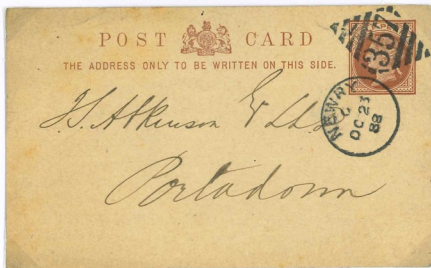 POST CARD
THE ADDRESS ONLY TO BE WRITTEN ON THIS SIDE.
357
NEWRY
OC 23
88
Atkinson
Portadown